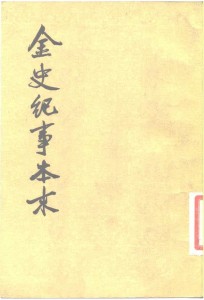 金史纪事本末